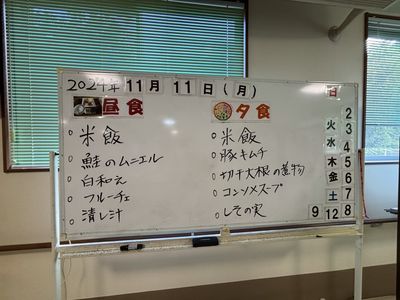 2024年11月11日(月)
昼食
○米飯
○鮭のムニエル
○白和え
○フルーチェ
○清し汁
夕食
○米飯
○豚キムチ
○切干大根の煮物
○コンソメスープ
○しその実
日
火
水
木
金
土
2
3
4
5
6
7
8
9
12